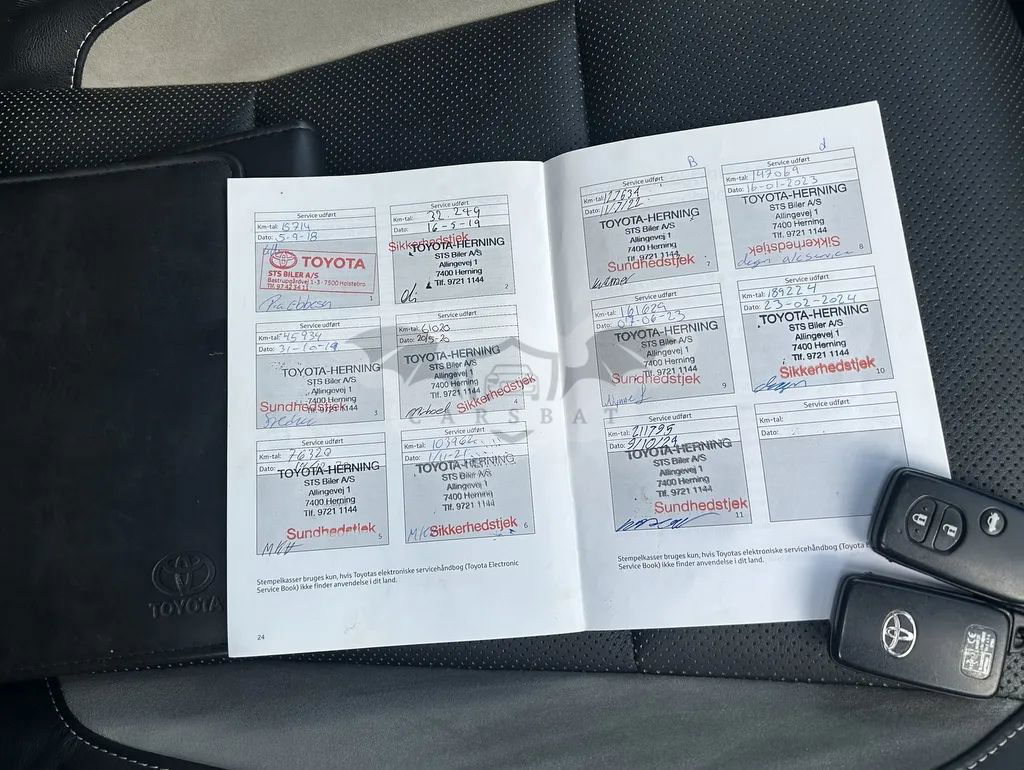 Service udført
Km-tal: 15714
Dato: 5-9-18
TOYOTA
STS BILER A/S
Bastrupgårdvej 1-3 · 7500 Holstebro
Tlf. 97 42 34 11
Pia Ebbesen
1
Service udført
Km-tal: 32.249
Dato: 16-5-19
Sikkerhedstjek
TOYOTA-HERNING
STS Biler A/S
Allingevej 1
7400 Herning
Tlf. 9721 1144
2
Service udført
Km-tal: 45934
Dato: 31-10-19
TOYOTA-HERNING
STS Biler A/S
Allingevej 1
7400 Herning
Tlf. 9721 1144
Sundhedstjek
3
Service udført
Km-tal: 61020
Dato: 20/5-20
TOYOTA-HERNING
STS Biler A/S
Allingevej 1
7400 Herning
Tlf. 9721 1144
Michael
Sikkerhedstjek
4
Service udført
Km-tal: 76320
Dato:
TOYOTA-HERNING
STS Biler A/S
Allingevej 1
7400 Herning
Tlf. 9721 1144
Sundhedstjek
MKH
5
Service udført
Km-tal: 103962
Dato: 1/11-21
TOYOTA-HERNING
STS Biler A/S
Allingevej 1
7400 Herning
Tlf. 9721 1144
Sikkerhedstjek
6
Stempelkasser bruges kun, hvis Toyotas elektroniske servicehåndbog (Toyota Electronic
Service Book) ikke finder anvendelse i dit land.
24
B
Service udført
Km-tal: 127634
Dato: 11/7/22
TOYOTA-HERNING
STS Biler A/S
Allingevej 1
7400 Herning
Tlf. 9721 1144
Sundhedstjek
7
d
Service udført
Km-tal: 147069
Dato: 16-01-2023
TOYOTA-HERNING
STS Biler A/S
Allingevej 1
7400 Herning
Tlf. 9721 1144
Sikkerhedstjek
8
Service udført
Km-tal: 161629
Dato: 07-06-23
TOYOTA-HERNING
STS Biler A/S
Allingevej 1
7400 Herning
Tlf. 9721 1144
Sundhedstjek
9
Service udført
Km-tal: 189224
Dato: 23-02-2024
TOYOTA-HERNING
STS Biler A/S
Allingevej 1
7400 Herning
Tlf. 9721 1144
Sikkerhedstjek
10
Service udført
Km-tal: 211795
Dato: 9/10/24
TOYOTA-HERNING
STS Biler A/S
Allingevej 1
7400 Herning
Tlf. 9721 1144
Sundhedstjek
11
Service udført
Km-tal:
Dato:
Stempelkasser bruges kun, hvis Toyotas elektroniske servicehåndbog (Toyota E
Service Book) ikke finder anvendelse i dit land.
CARSBAT
TOYOTA